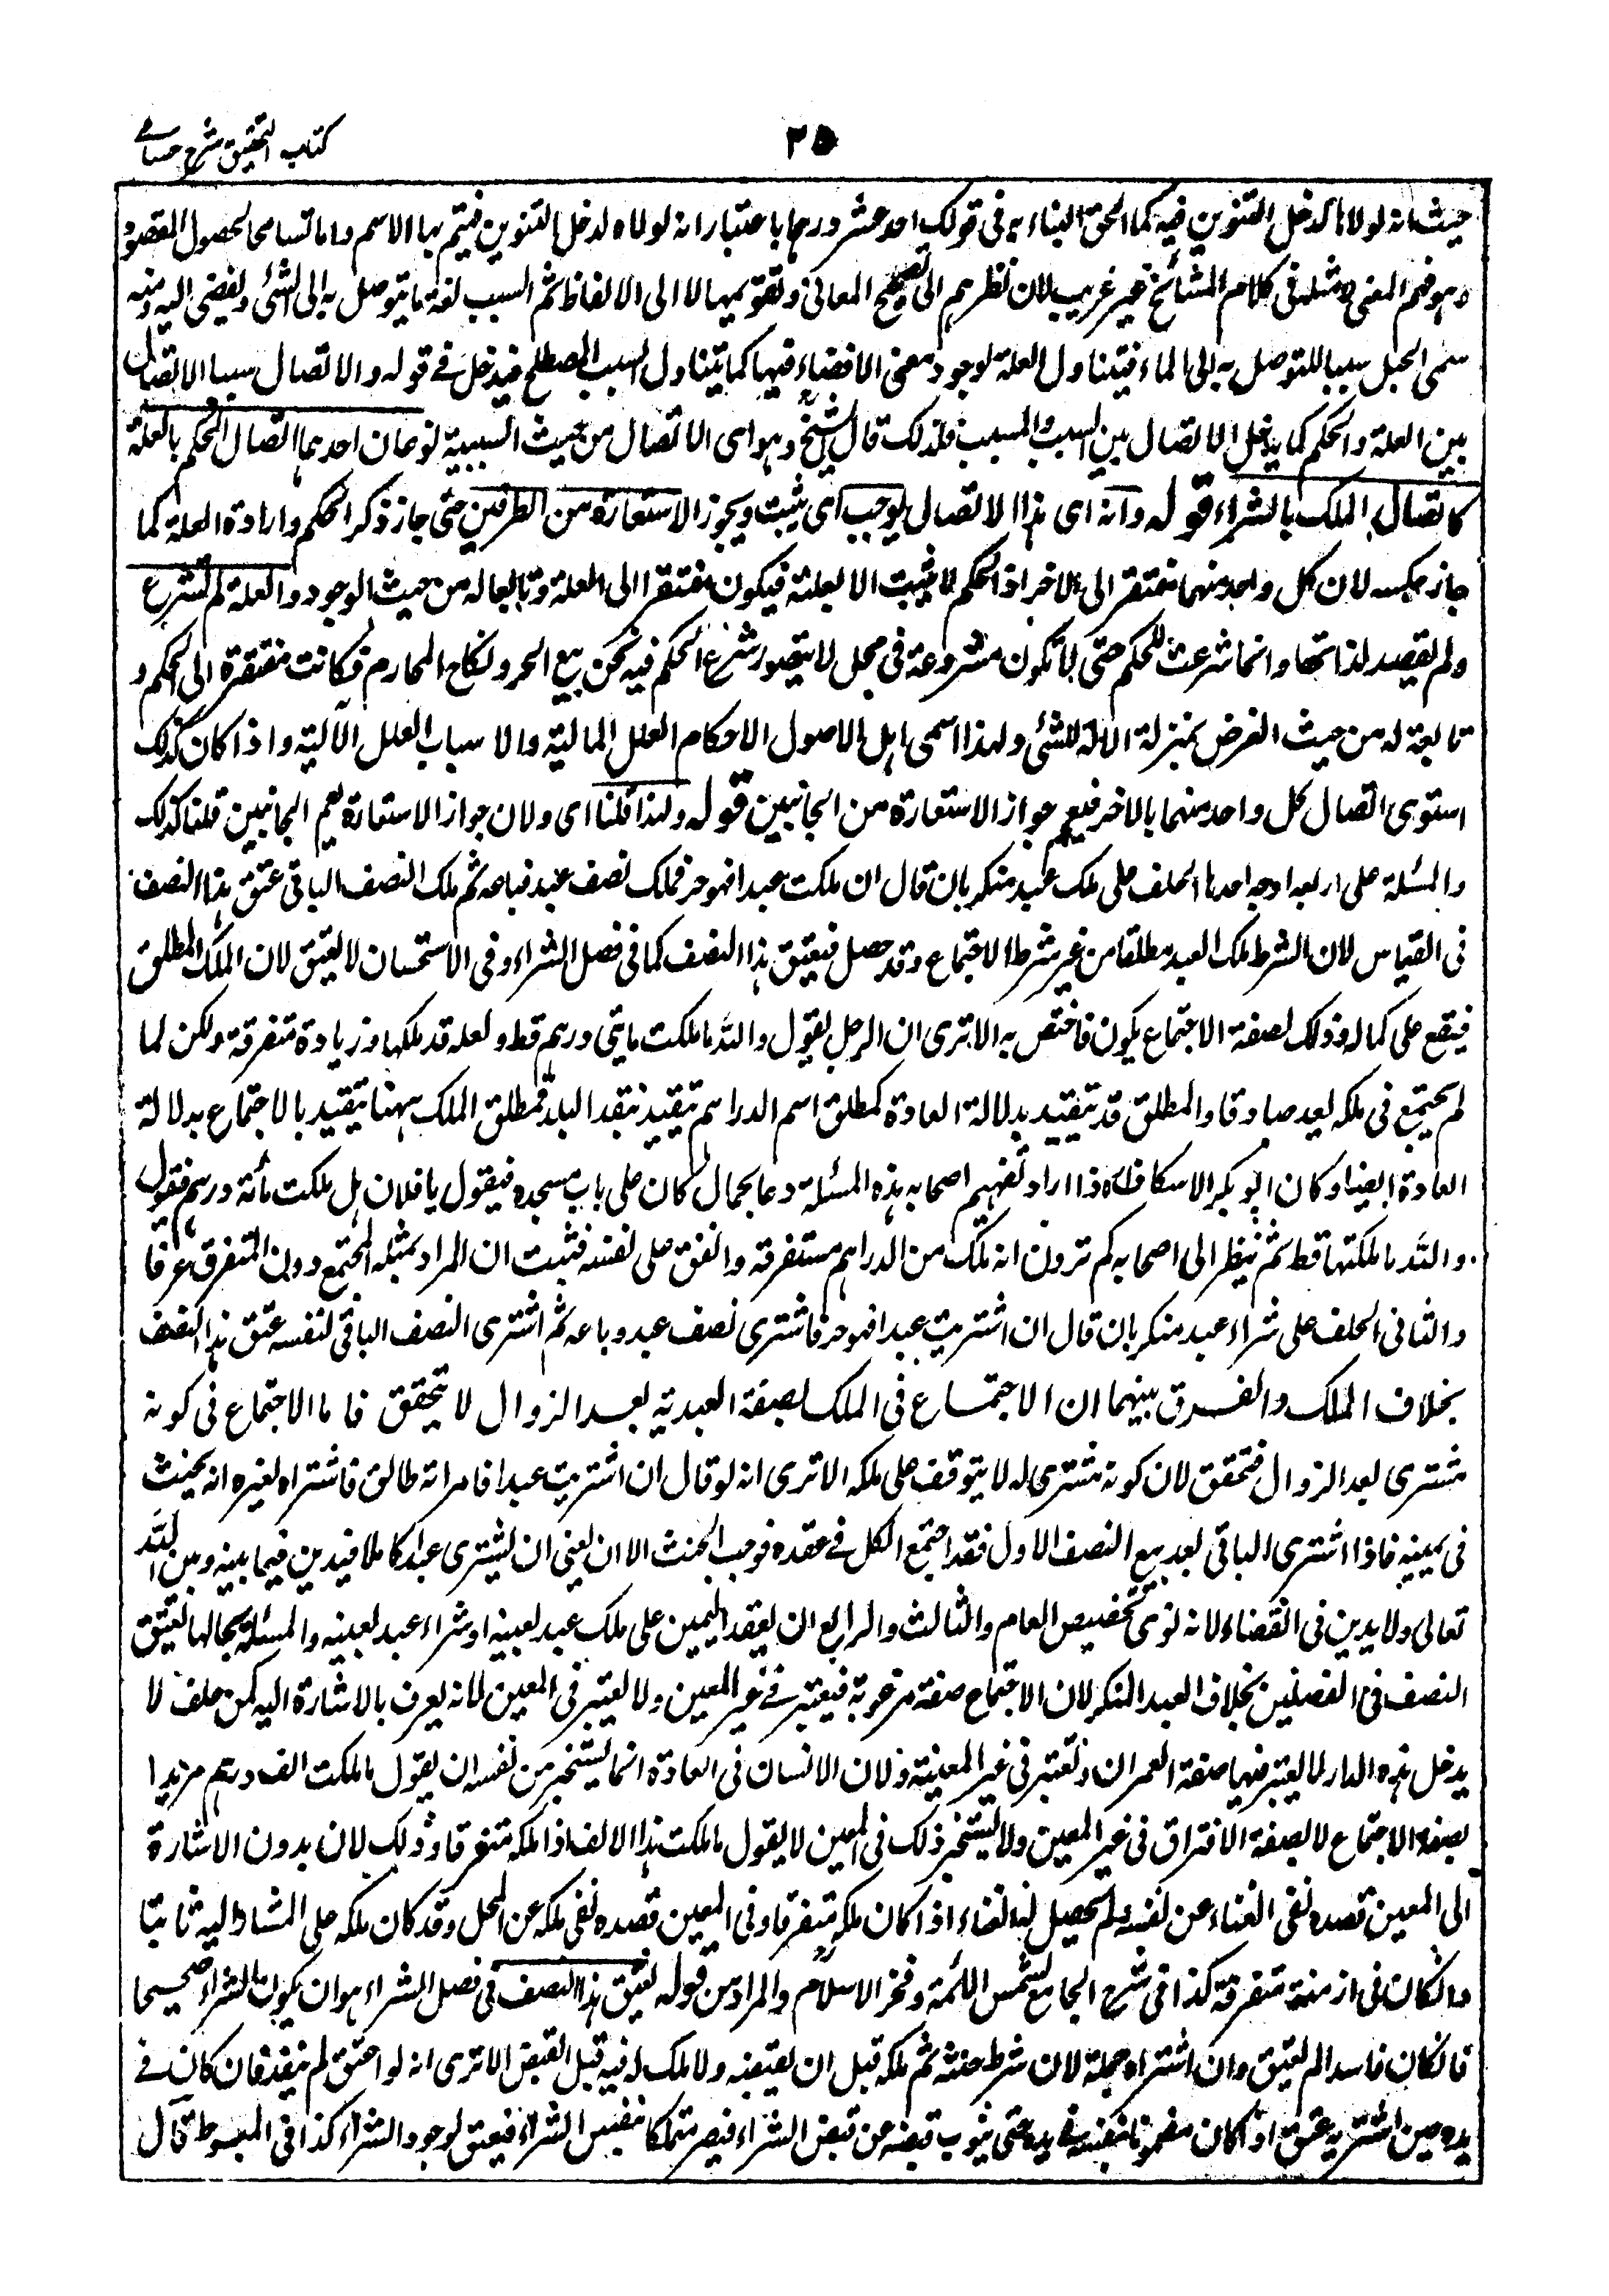 كتاب التحقيق شرح حسامى
٣٥
حيث انه لولاها لدخل التنوين فيه كما الحق البناء به فى قولك احد عشر درهما باعتبار انه لولاه لدخل التنوين فيتم بها الاسم وانما تسامحا لحصول المقصود
وهو فهم المعنى ومثله فى كلام المشائخ غير غريب لان نظرهم الى تصحيح المعانى وتقويمها لا الى الالفاظ ثم السبب لغة ما يتوصل به الى الشئ ويفضى اليه ومنه
سمى الحبل سببا للتوصل به الى الماء فيتناول العلة لوجود معنى الافضاء فيها كما يتناول السبب المصطلح فيدخل فى قوله والاتصال سببا الاتصال
بين العلة والحكم كما يدخل الاتصال بين السبب والمسبب فلذلك قال الشيخ وهو اى الاتصال من حيث السببية نوعان احدهما اتصال الحكم بالعلة
كاتصال الملك بالشراء قوله وانه اى هذا الاتصال يوجب اى يثبت ويجوز الاستعارة من الطرفين حتى جاز ذكر الحكم وارادة العلة كما
جاز عكسه لان كل واحد منهما مفتقر الى الاخر اذ الحكم لا يثبت الا بعلته فيكون مفتقرا الى العلة وتابعا له من حيث الوجود والعلة لم تشرع
ولم تقصد لذاتها وانما شرعت للحكم حتى لا تكون مشروعة فى محل لا يتصور شرع الحكم فيه نحو بيع الحر ونكاح المحارم فكانت مفتقرة الى الحكم و
تابعة له من حيث الغرض بمنزلة الالة للشئ ولهذا اسمى اهل الاصول الاحكام العلل المالية والاسباب العلل الالية واذا كان كذلك
استوى اتصال كل واحد منهما بالاخر فيعم جواز الاستعارة من الجانبين قوله ولهذا قلنا اى ولان جواز الاستعارة يعم الجانبين قلنا كذلك
والمسئلة على اربعة اوجه احدها الحلف على ملك عبد منكر بان قال ان ملكت عبدا فهو حر فملك نصف عبد فباعه ثم ملك النصف الباقى عتق هذا النصف
فى القياس لان الشرط ملك العبد مطلقا من غير شرط الاجتماع وقد حصل فيعتق هذا النصف كما فى فصل الشراء وفى الاستحسان لا يعتق لان الملك المطلق
فيقع على كماله وذلك بصفة الاجتماع يكون فاختص به الا ترى ان الرجل يقول والله ما ملكت مايتى درهم قط ولعله قد ملكها وزيادة متفرقة ولكن لما
لم يجتمع فى ملكه يعد صادقا والمطلق قد يتقيد بدلالة العادة كمطلق اسم الدراهم يتقيد بنقد البلد فمطلق الملك ههنا يتقيد بالاجتماع بدلالة
العادة ايضا وكان ابو بكر الاسكاف اذا اراد تفهيم اصحابه هذه المسئلة دعا بحمال كان على باب مسجده فيقول يا فلان هل ملكت مأته درهم فيقول
والله ما ملكتها قط ثم ينظر الى اصحابه كم ترون انه ملك من الدراهم متفرقة وانفق على نفسه فثبت ان المراد بمثله المجتمع دون المتفرق عرفا
والثانى الحلف على شراء عبد منكر بان قال ان اشتريت عبدا فهو حر فاشترى نصف عبد وباعه ثم اشترى النصف الباقى لنفسه عتق هذا النصف
بخلاف الملك والفرق بينهما ان الاجتماع فى الملك بصفة العبدية بعد الزوال لا يتحقق فاما الاجتماع فى كونه
مشترى بعد الزوال فمتحقق لان كونه مشترى له لا يتوقف على ملكه الا ترى انه لو قال ان اشتريت عبدا فامراته طالق فاشتراه لغيره انه يحنث
فى يمينه فاذا اشترى الباقى بعد بيع النصف الاول فقد اجتمع الكل فى عقده فوجب الحنث الا ان يعنى ان يشترى عبدا كاملا فيدين فيما بينه وبين الله
تعالى ولا يدين فى القضاء لانه نوى تخصيص العام والثالث والرابع ان يعقد اليمين على ملك عبد بعينه او شراء عبد بعينه والمسئلة بحالها يعتق
النصف فى الفصلين بخلاف العبد المنكر لان الاجتماع صفة مرغوبة فيعتبر فى غير المعين ولا يعتبر فى المعين لانه يعرف بالاشارة اليه كمن حلف لا
يدخل هذه الدار لا يعتبر فيها صفة العمران وتعتبر فى غير المعينة ولان الانسان فى العادة انما يستخبر من نفسه ان يقول ما ملكت الف درهم مريدا
بصفة الاجتماع لا بصفة الافتراق فى غير المعين ولا يستخبر ذلك فى المعين لا يقول ما ملكت هذا الالف اذا ملكه متفرقا وذلك لان بدون الاشارة
الى المعين قصده نفى الغناء عن نفسه ولم يحصل له الغناء اذا كان ملكه متفرقا وفى المعين قصده نفى ملكه عن المحل وقد كان ملكه على المشار اليه ثابتا
وانكان فى ازمنة متفرقة كذا فى شرح الجامع لشمس الائمة وفخر الاسلام والمراد من قوله يعتق هذا النصف فى فصل الشراء هو ان يكون الشراء صحيحا
فانكان فاسدا لم يعتق وان اشتراه جملة لان شرط حنثه ثم ملكه قبل ان يقبضه ولا ملك له فيه قبل القبض الا ترى انه لو اعتق لم ينفذ فان كان فى
يده حين اشتريه عتق اذا كان مضمونا بنفسه فى يده حتى ينوب قبضه عن قبض الشراء فيصير متملكا بنفس الشراء فيعتق لوجود الشراء كذا فى المبسوط قال